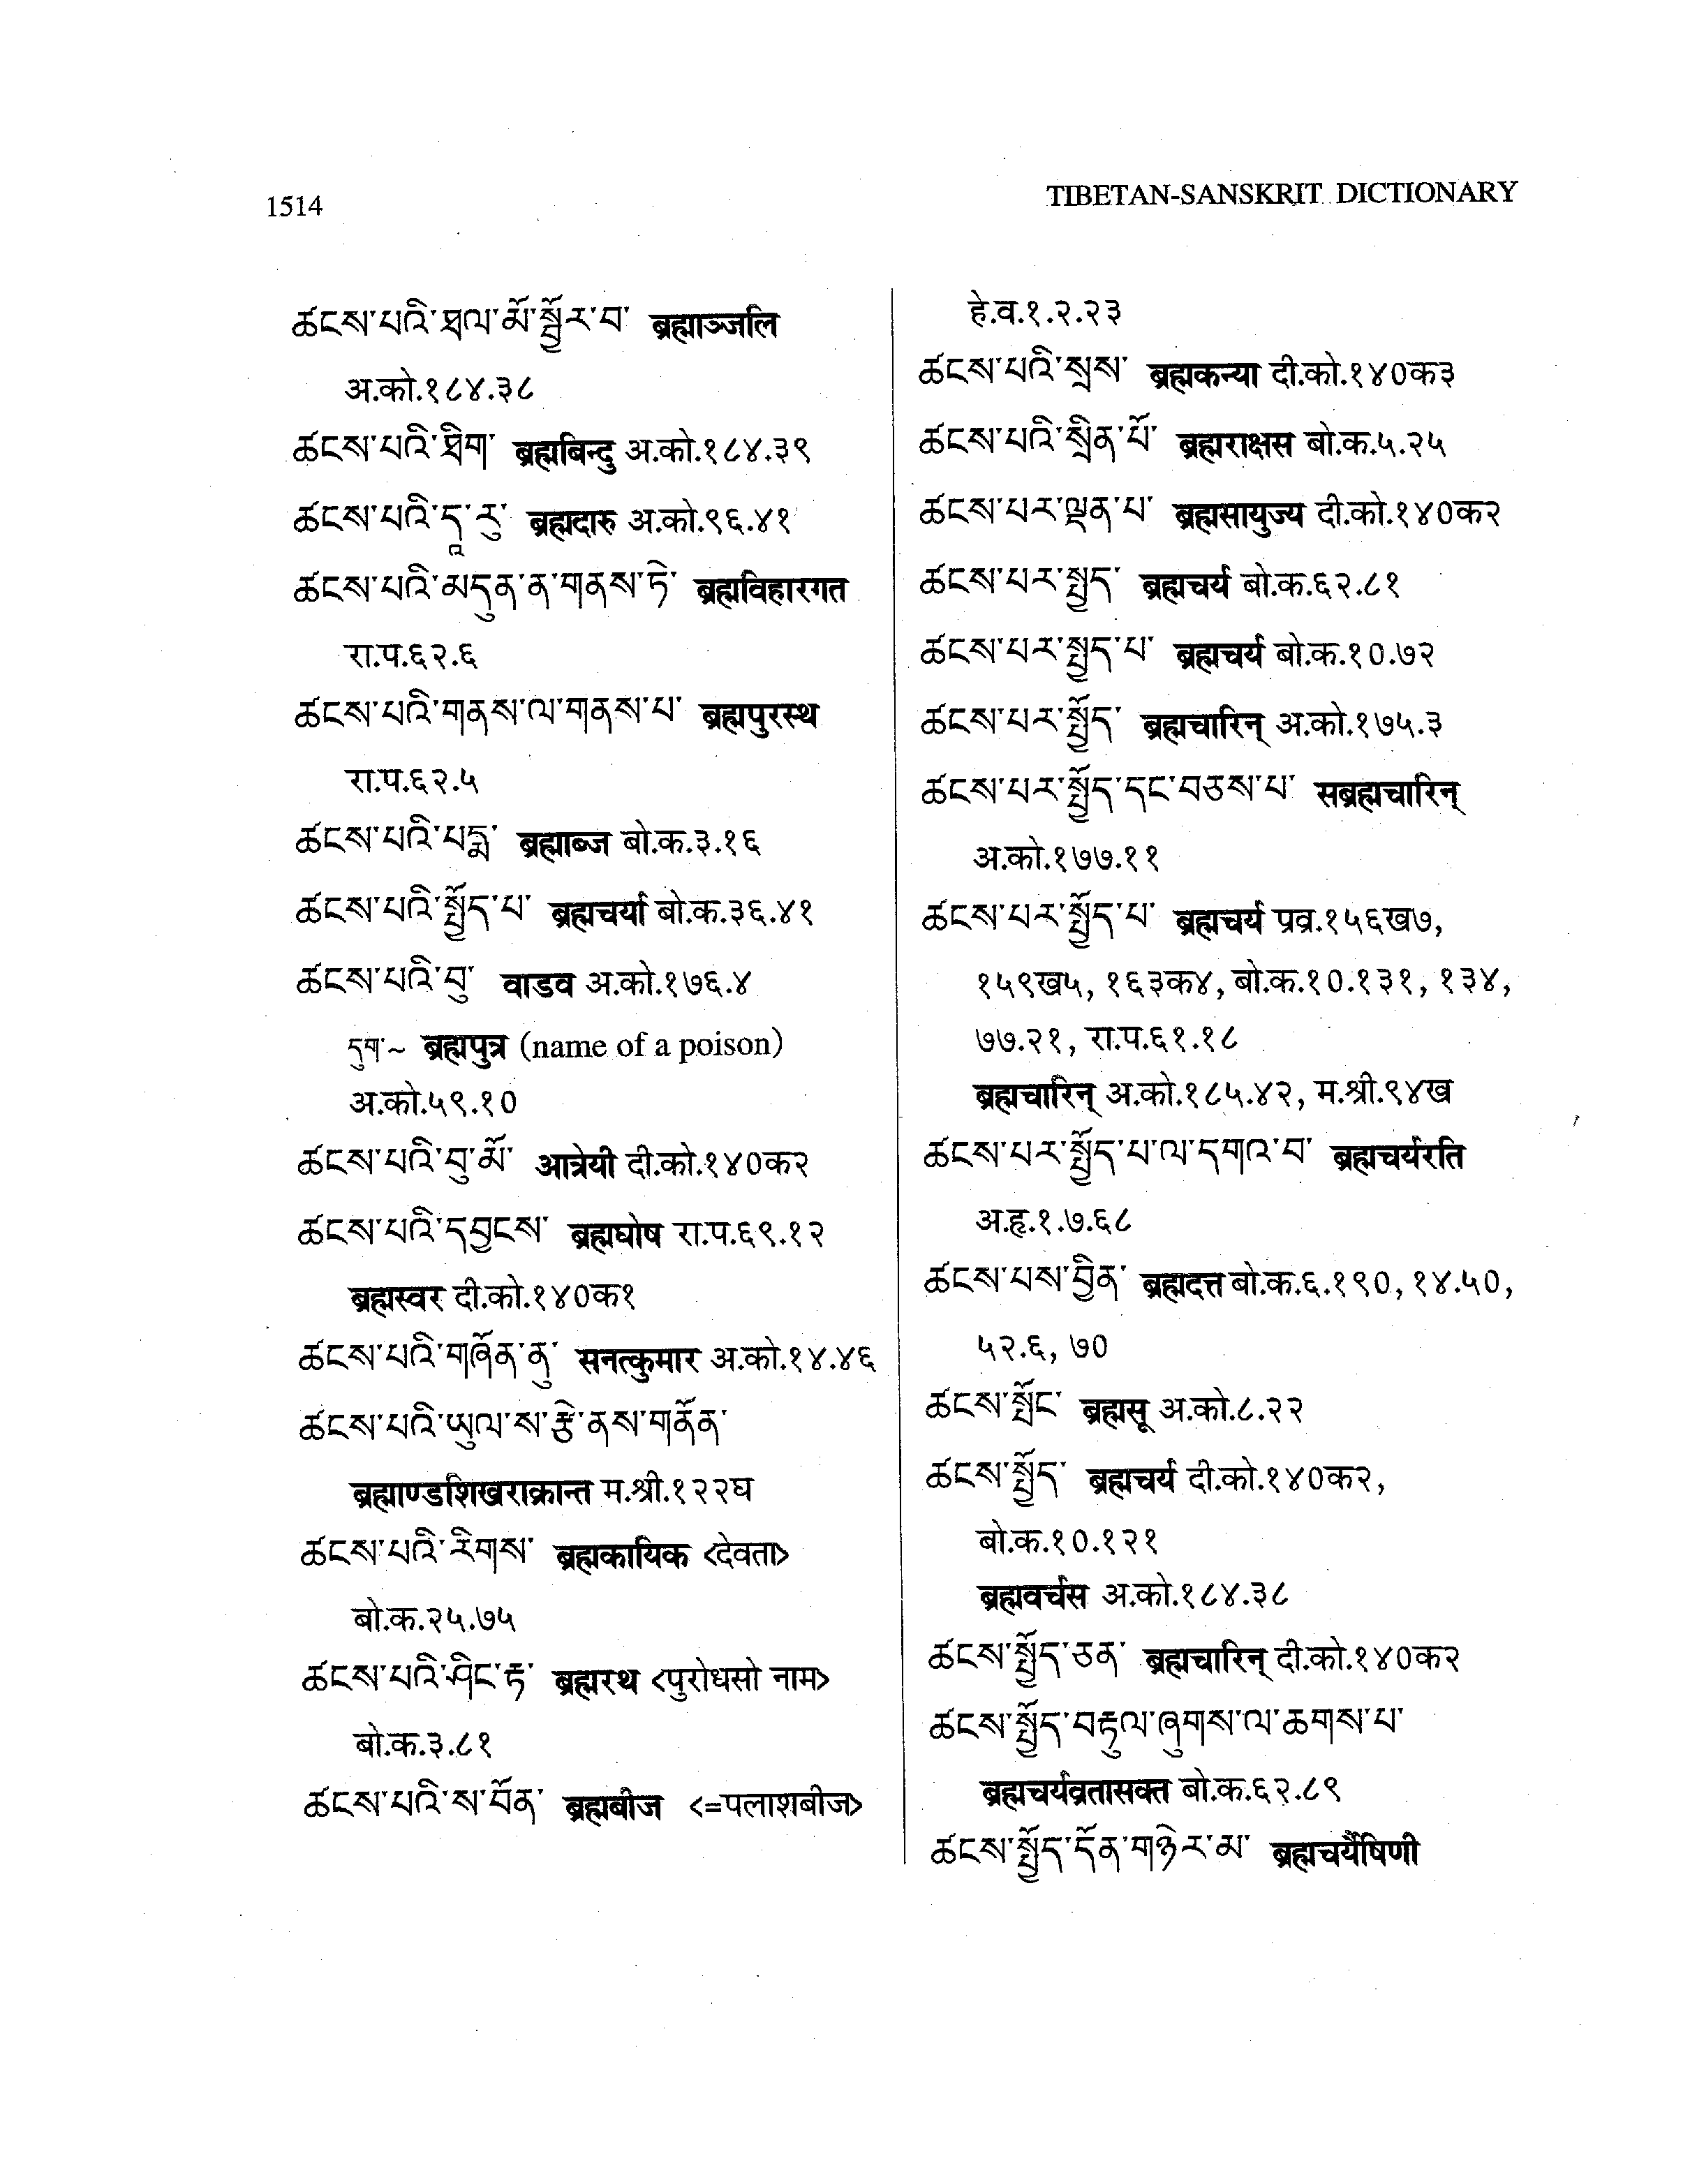 1514
TIBETAN-SANSKRIT DICTIONARY
ཚངས་པའི་ཐལ་མོ་སྦྱོར་བ་ ब्रह्माञ्जलि
अ.को.१८४.३८
ཚངས་པའི་ཐིག་ ब्रह्मबिन्दु अ.को.१८४.३९
ཚངས་པའི་དཱ་རུ་ ब्रह्मदारु अ.को.९६.४१
ཚངས་པའི་མདུན་ན་གནས་ཏེ་ ब्रह्मविहारगत
रा.प.६२.६
ཚངས་པའི་གནས་ལ་གནས་པ་ ब्रह्मपुरस्थ
रा.प.६२.५
ཚངས་པའི་པདྨ་ ब्रह्माब्ज बो.क.३.१६
ཚངས་པའི་སྤྱོད་པ་ ब्रह्मचर्या बो.क.३६.४१
ཚངས་པའི་བུ་ वाडव अ.को.१७६.४
དུག་~ ब्रह्मपुत्र (name of a poison)
अ.को.५९.१०
ཚངས་པའི་བུ་མོ་ आत्रेयी दी.को.१४०क२
ཚངས་པའི་དབྱངས་ ब्रह्मघोष रा.प.६९.१२
ब्रह्मस्वर दी.को.१४०क१
ཚངས་པའི་གཞོན་ནུ་ सनत्कुमार अ.को.१४.४६
ཚངས་པའི་ཡུལ་ས་རྩེ་ནས་གནོན་
ब्रह्माण्डशिखराक्रान्त म.श्री.१२२घ
ཚངས་པའི་རིགས་ ब्रह्मकायिक <देवता>
बो.क.२५.७५
ཚངས་པའི་ཤིང་རྟ་ ब्रह्मरथ <पुरोधसो नाम>
बो.क.३.८१
ཚངས་པའི་ས་བོན་ ब्रह्मबीज <=पलाशबीज>
हे.व.१.२.२३
ཚངས་པའི་སྲས་ ब्रह्मकन्या दी.को.१४०क३
ཚངས་པའི་སྲིན་པོ་ ब्रह्मराक्षस बो.क.५.२५
ཚངས་པར་ལྡན་པ་ ब्रह्मसायुज्य दी.को.१४०क२
ཚངས་པར་སྤྱད་ ब्रह्मचर्य बो.क.६२.८१
ཚངས་པར་སྤྱད་པ་ ब्रह्मचर्य बो.क.१०.७२
ཚངས་པར་སྤྱོད་ ब्रह्मचारिन् अ.को.१७५.३
ཚངས་པར་སྤྱོད་དང་བཅས་པ་ सब्रह्मचारिन्
अ.को.१७७.११
ཚངས་པར་སྤྱོད་པ་ ब्रह्मचर्य प्रव्र.१५६ख७,
१५९ख५, १६३क४, बो.क.१०.१३१, १३४,
७७.२१, रा.प.६१.१८
ब्रह्मचारिन् अ.को.१८५.४२, म.श्री.९४ख
ཚངས་པར་སྤྱོད་པ་ལ་དགའ་བ་ ब्रह्मचर्यरति
अ.हृ.१.७.६८
ཚངས་པས་བྱིན་ ब्रह्मदत्त बो.क.६.१९०, १४.५०,
५२.६, ७०
ཚངས་སྤོང་ ब्रह्मसू अ.को.८.२२
ཚངས་སྤྱོད་ ब्रह्मचर्य दी.को.१४०क२,
बो.क.१०.१२१
ब्रह्मवर्चस अ.को.१८४.३८
ཚངས་སྤྱོད་ཅན་ ब्रह्मचारिन् दी.को.१४०क२
ཚངས་སྤྱོད་བརྟུལ་ཞུགས་ལ་ཆགས་པ་
ब्रह्मचर्यव्रतासक्त बो.क.६२.८९
ཚངས་སྤྱོད་དོན་གཉེར་མ་ ब्रह्मचर्यैषिणी